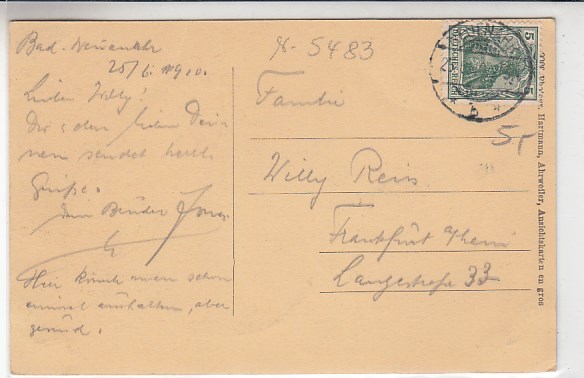 Bad-Neuenahr
25/6. 1910.
Lieber Willy!
Dir & den lieben Dei-
nen sendet herzl.
Grüße.
Dein Bruder
Hier könnte man schon
einmal aushalten, aber
gesund.
№ 5483
Familie
Willy Reis
Frankfurt a/Main
Langestraße 33
5
DEUTSCHES REICH
5
Hartmann, Ahrweiler, Ansichtskarten en gros